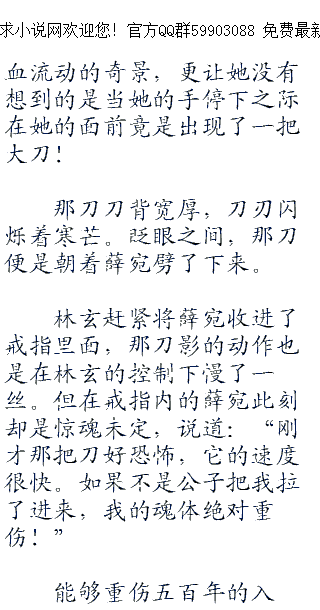 求小说网欢迎您！官方QQ群59903088 免费最新
血流动的奇景，更让她没有
想到的是当她的手停下之际
在她的面前竟是出现了一把
大刀！
那刀刀背宽厚，刀刃闪
烁着寒芒。眨眼之间，那刀
便是朝着薛宛劈了下来。
林玄赶紧将薛宛收进了
戒指里面，那刀影的动作也
是在林玄的控制下漫了一
丝。但在戒指内的薛宛此刻
却是惊魂未定，说道：“刚
才那把刀好恐怖，它的速度
很快。如果不是公子把我拉
了进来，我的魂体绝对重
伤！”
能够重伤五百年的入